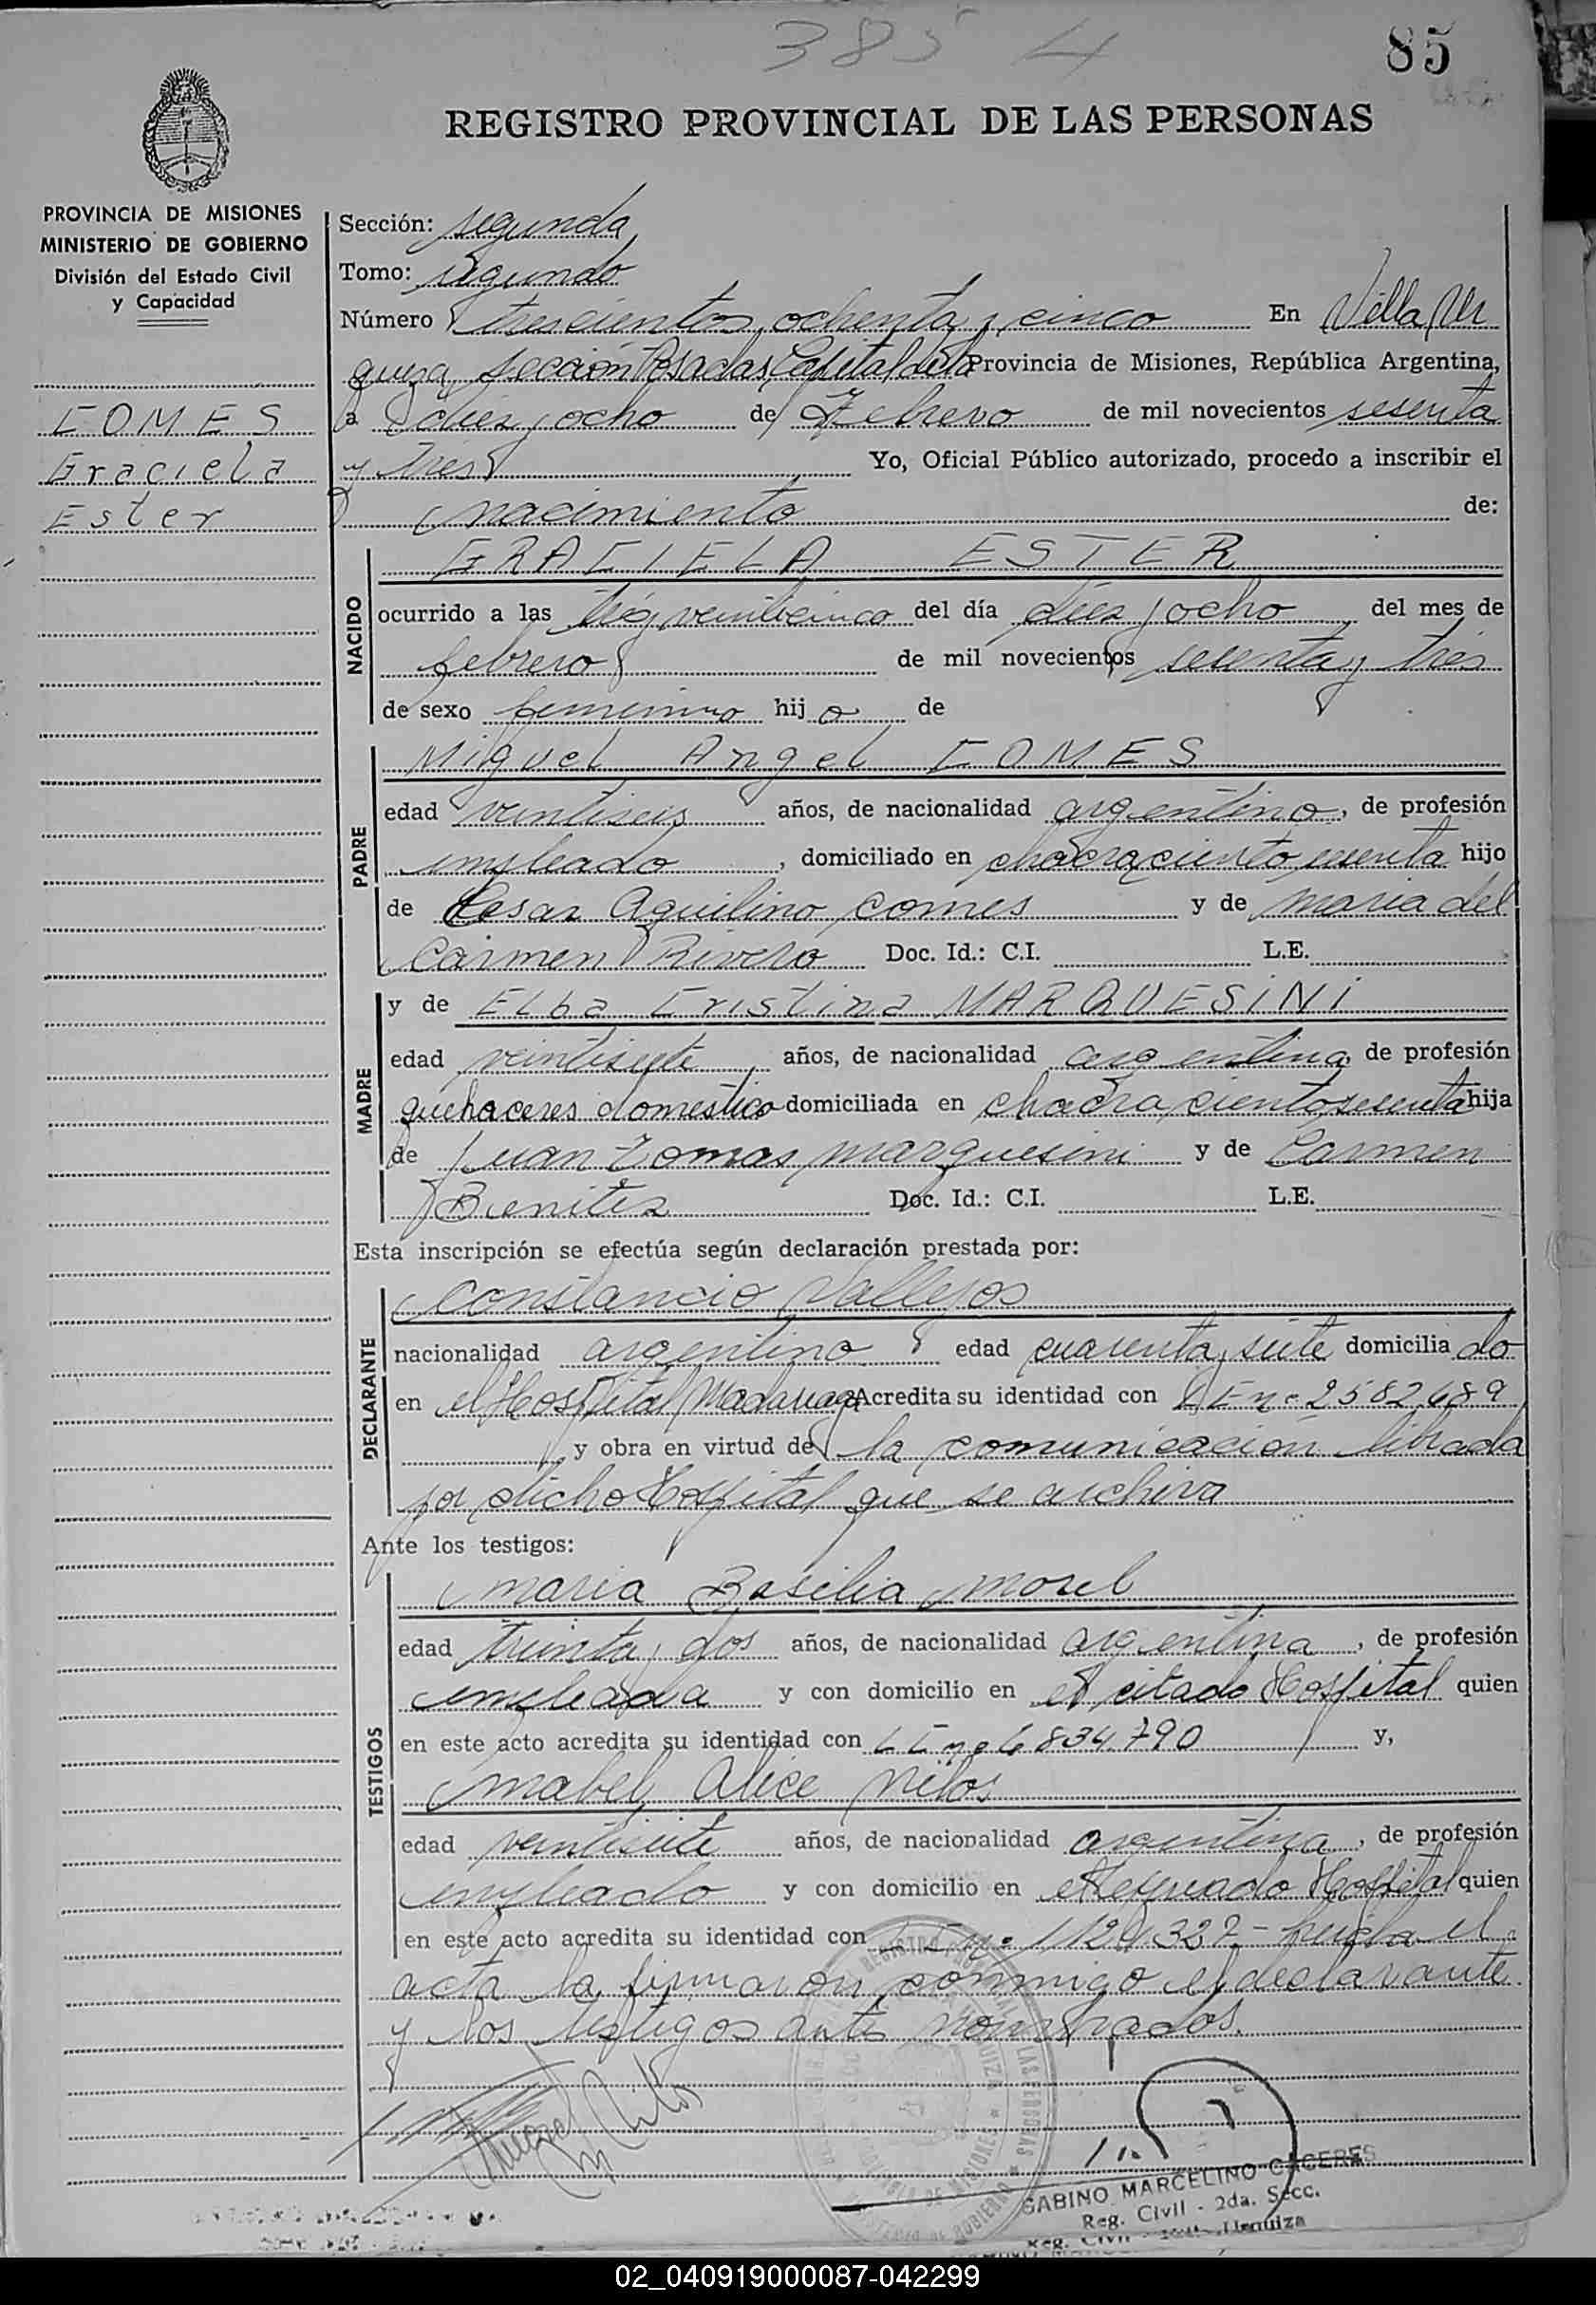 385 4
85
REGISTRO PROVINCIAL DE LAS PERSONAS
PROVINCIA DE MISIONES
MINISTERIO DE GOBIERNO
División del Estado Civil
y Capacidad
COMES
Graciela
Ester
Sección: segunda
Tomo: segundo
Número trescientos ochenta y cinco En Villa Ur
quiza sección Posadas, Capital de la Provincia de Misiones, República Argentina,
a diez y ocho de Febrero de mil novecientos sesenta
y tres Yo, Oficial Público autorizado, procedo a inscribir el
nacimiento de:
NACIDO
GRACIELA ESTER
ocurrido a las tres y veinticinco del día diez y ocho del mes de
febrero de mil novecientos sesenta y tres
de sexo femenino hij a de
PADRE
Miguel Angel COMES
edad veintiseis años, de nacionalidad argentino, de profesión
empleado, domiciliado en chacra ciento sesenta hijo
de Cesar Aquilino Comes y de Maria del
Carmen Rivero Doc. Id.: C.I. L.E.
MADRE
y de Elba Cristina MARQUESINI
edad veintisiete años, de nacionalidad argentina de profesión
quehaceres domestico domiciliada en chacra ciento sesenta hija
de Juan Tomas Marquesini y de Carmen
Benitez Doc. Id.: C.I. L.E.
Esta inscripción se efectúa según declaración prestada por:
DECLARANTE
Constancio Vallejos
nacionalidad argentino edad cuarenta y siete domicilia do
en el Hospital Madariaga Acredita su identidad con LE nº 2582689
y obra en virtud de la comunicación librada
por dicho Hospital que se archiva
Ante los testigos:
TESTIGOS
Maria Basilia Morel
edad treinta y dos años, de nacionalidad argentina, de profesión
empleada y con domicilio en el citado Hospital quien
en este acto acredita su identidad con LC nº 6834790 y,
Mabel Alice
edad veintisiete años, de nacionalidad argentina, de profesión
empleado y con domicilio en el Hospital quien
en este acto acredita su identidad con nº el
acta la firmaron conmigo el declarante
y los testigos antes nombrados.
SABINO MARCELINO CACERES
Reg. Civil - 2da. Secc.
Urquiza
02_040919000087-042299